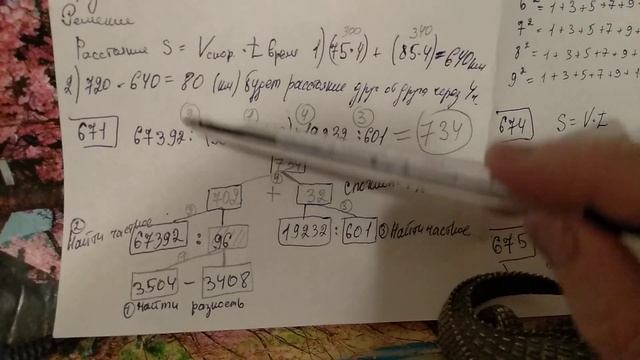 Решение
300 340
Расстояние S = Vскор. · t время 1) (75·4) + (85·4) = 640 км
2) 720 - 640 = 80 (км) будет расстояние друг от друга через 4ч.
671 67392 : : 601 = 734
734
702 + 32
② Найти частное
67392 : 96 19232 : 601 ③ Найти частное
3504 - 3408
① Найти разность
6² = 1+3+5+7+9+
7² = 1+3+5+7+9+
8² = 1+3+5+7+9+
9² = 1+3+5+7+9+1
674 S = V·t
675